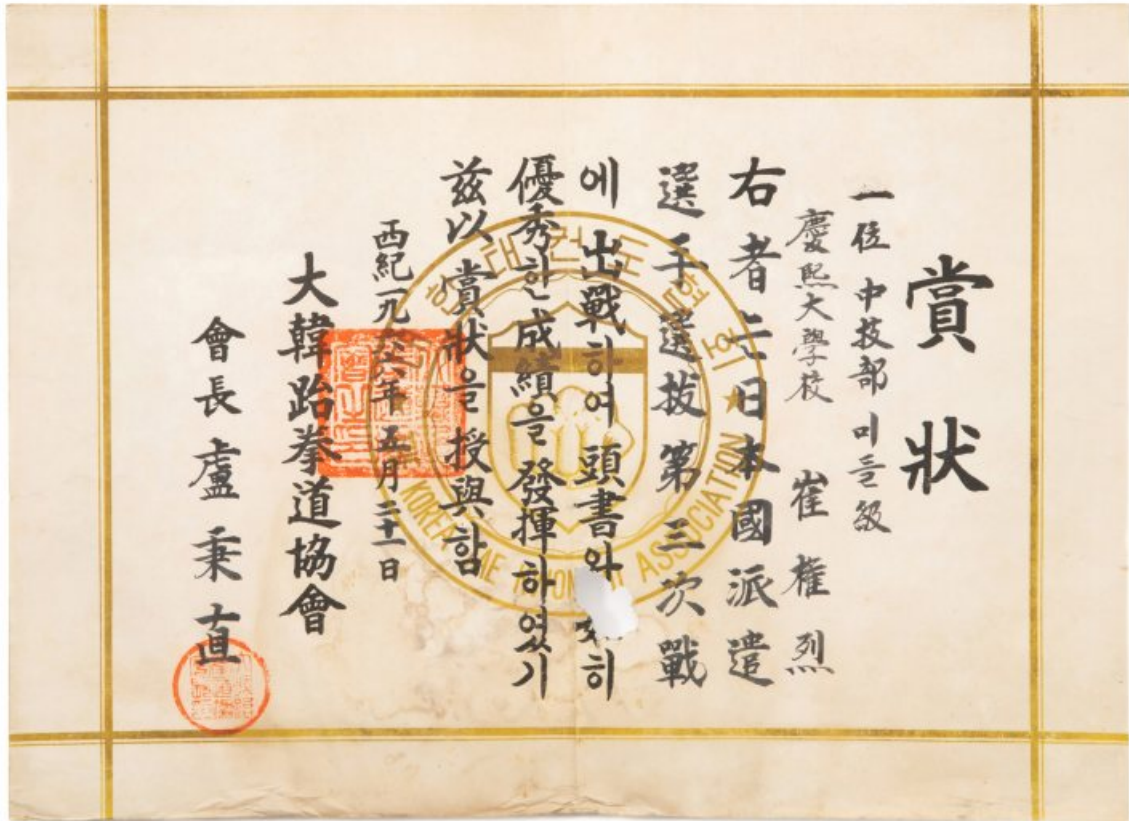 賞狀
一位 中技部 미들級
慶熙大學校 崔權烈
右者는 日本國派遣
選手選拔第三次戰
에 出戰하여 頭書와 如히
優秀한 成績을 發揮하였기
玆以 賞狀을 授與함
西紀一九六六年 五月 二十一日
大韓跆拳道協會
會長 盧秉直
대한태권도협회
KOREA TAE KWON DO ASSOCIATION